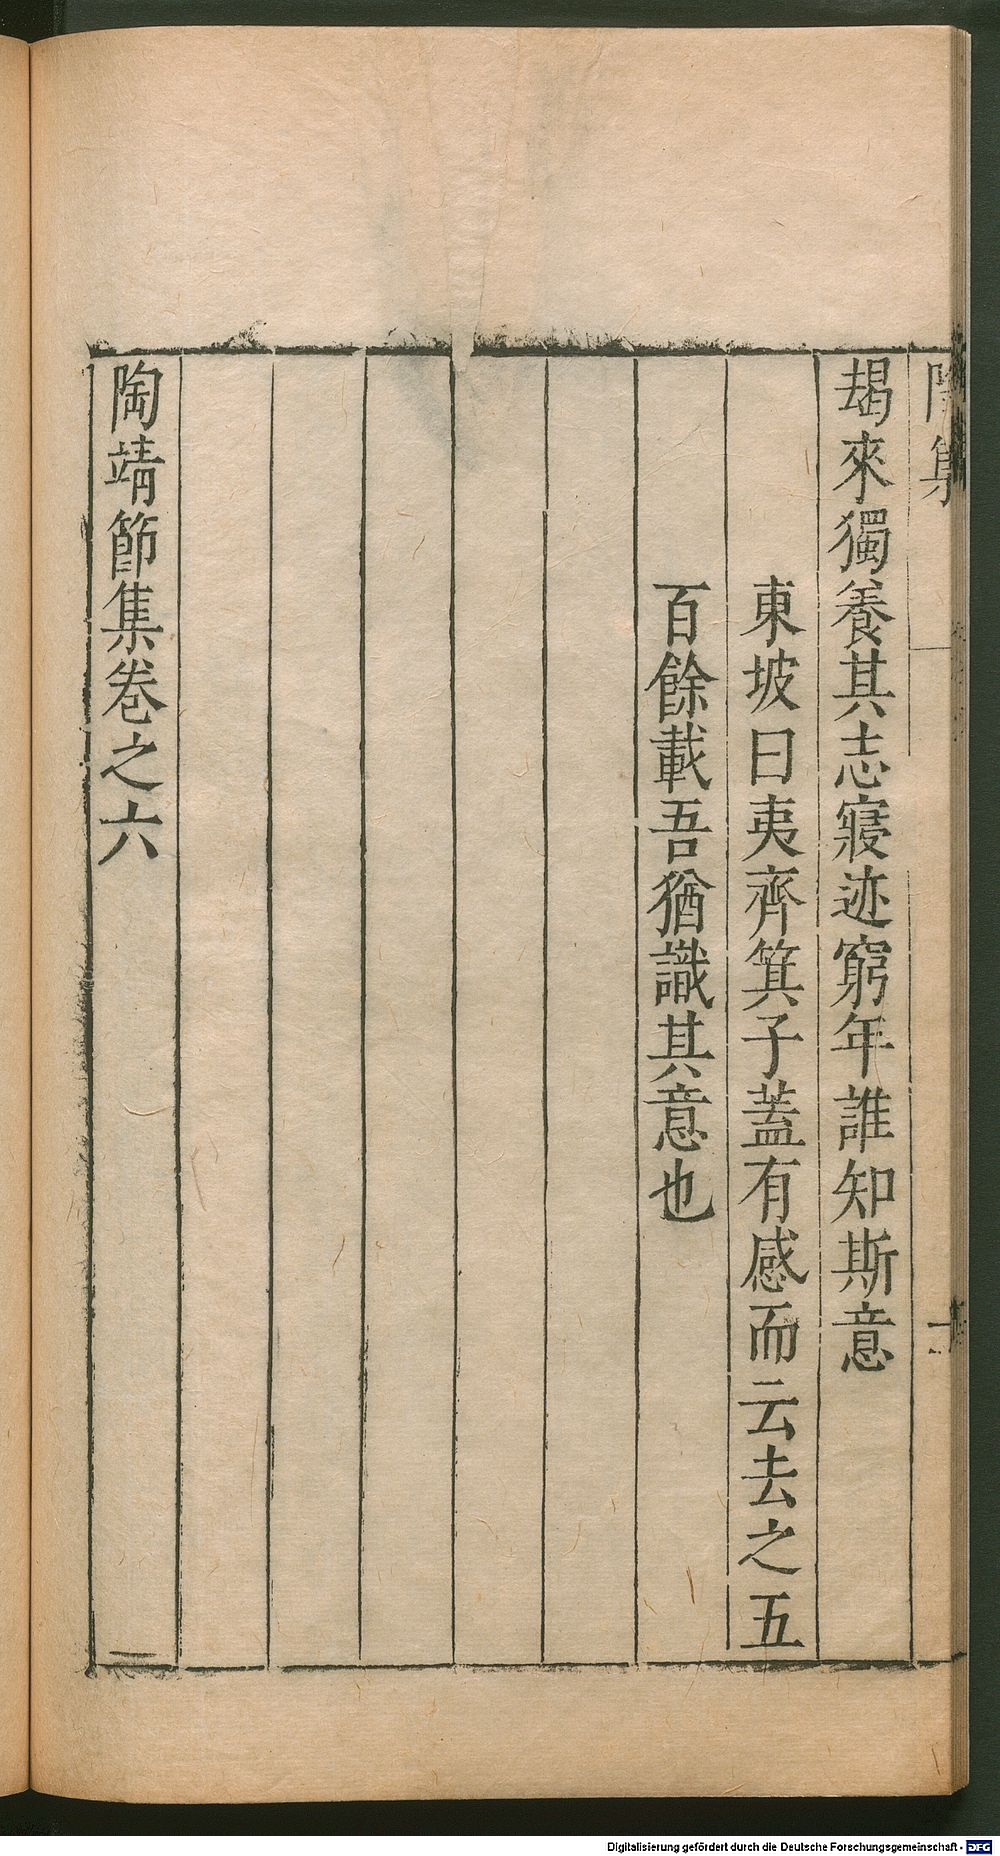 朅來獨養其志寢迹窮年誰知斯意
東坡曰夷齊箕子蓋有感而云去之五
百餘載吾猶識其意也
陶靖節集卷之六
Digitalisierung gefördert durch die Deutsche Forschungsgemeinschaft - DFG